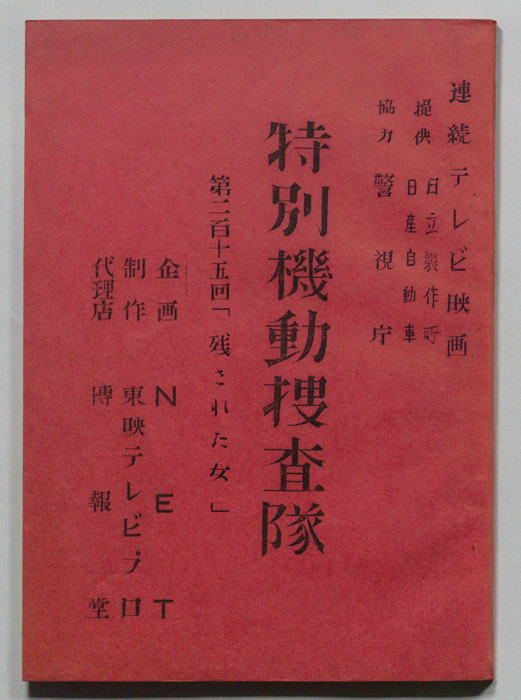 連続テレビ映画
提供 日立製作所
日産自動車
協力 警視庁
特別機動捜査隊
第二百十五回「残された女」
企画 NET
制作 東映テレビ・プロ
代理店 博報堂